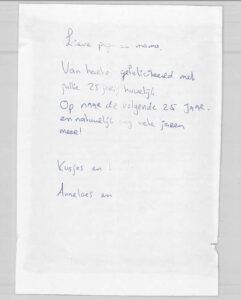 Lieve mama,
Van harte gefeliciteerd met
jullie 25 jarig huwelijk.
Op naar de volgende 25 JAAR -
en natuurlijk nog vele jaren
meer!
Kusjes en
Anneloes en